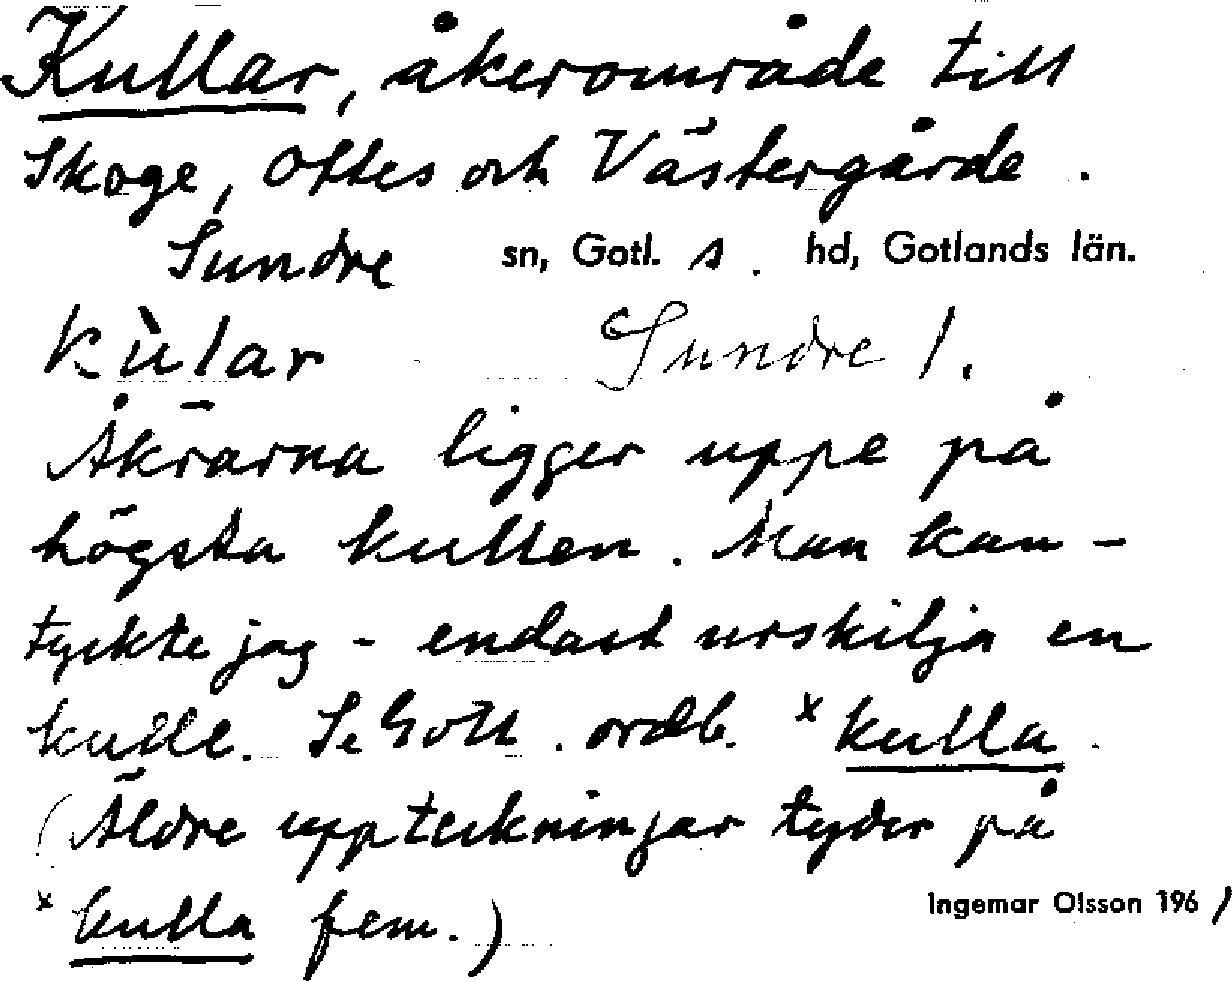 Kullar, åkerområde till
Skoge, Ottes och Västergårde.
Sundre sn, Gotl. s. hd, Gotlands län.
kùlar Sundre 1.
Åkrarna ligger uppe på
högsta kullen. Man kan -
tyckte jag - endast urskilja en
kulle. Se Gotl. ordb. *kulla.
(Äldre uppteckningar tyder på
*kulla fem.)
Ingemar Olsson 1961